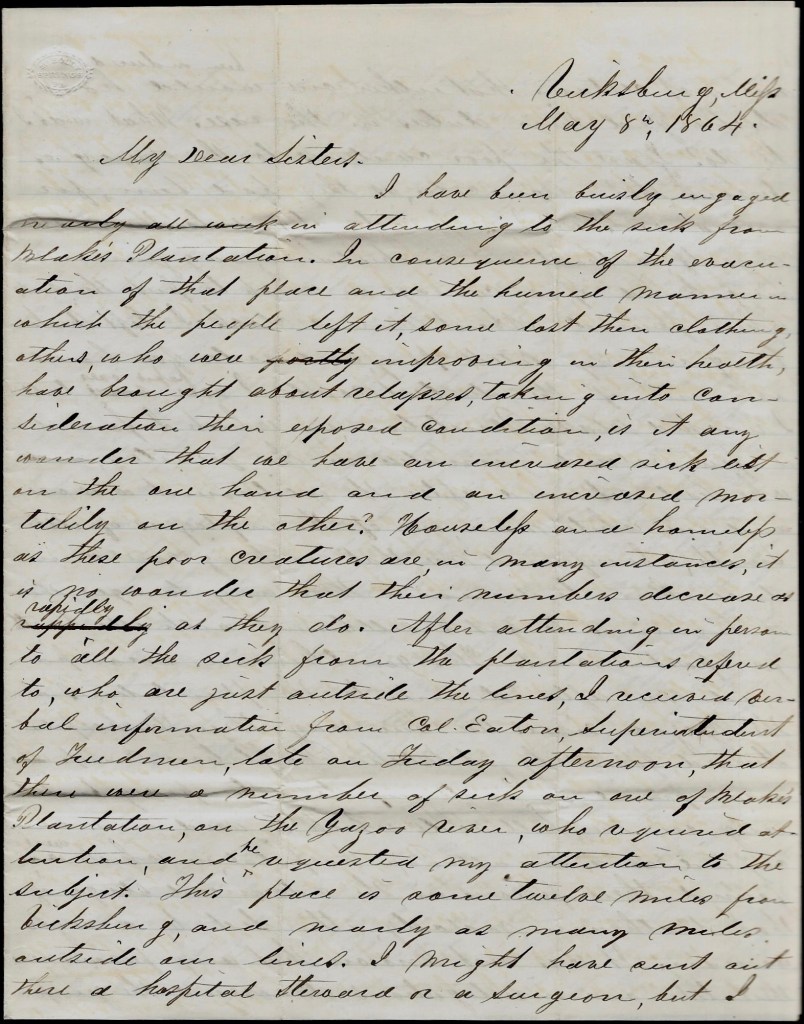 Vicksburg, Miss
May 8th, 1864.
My Dear Sisters.
I have been busily engaged
nearly all week in attending to the sick from
Blake's Plantation. In consequence of the evacu-
ation of that place and the hurried manner in
which the people left it, some lost their clothing,
others, who were improving in their health,
have brought about relapses, taking into con-
sideration their exposed condition, is it any
wonder that we have an increased sick list
on the one hand and an increased mor-
tality on the other? Houseless and homeless
as these poor creatures are, in many instances, it
is no wonder that their numbers decrease as
rapidly
rappedly as they do. After attending in person
to all the sick from the plantations refered
to, who are just outside the lines, I received ver-
bal information from Col. Eaton, Superintendent
of Freedmen, late on Friday afternoon, that
there were a number of sick on one of Blake's
Plantation, on the Yazoo river, who required at-
tention, and he requested my attention to the
subject. This place is some twelve miles from
Vicksburg, and nearly as many miles
outside our lines. I might have sent out
there a hospital Steward or a Surgeon, but I